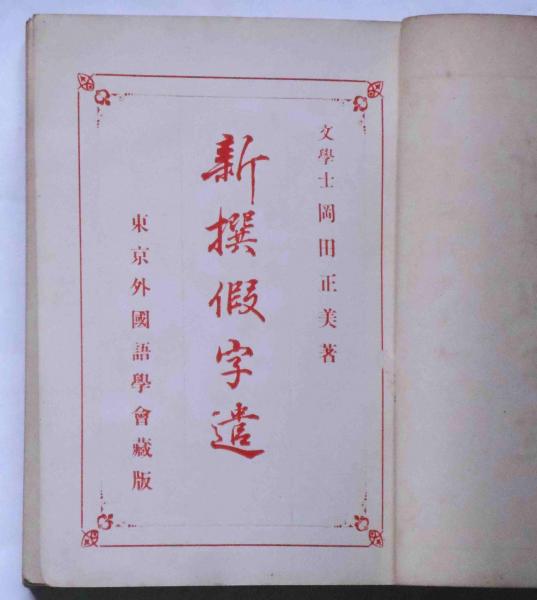 文學士岡田正美著
新撰假字遣
東京外國語學會藏版